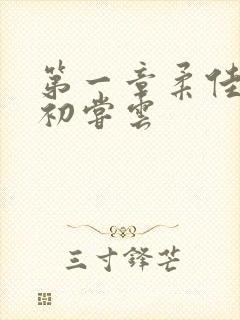 第一章柔佳
初尝云
三寸锋芒